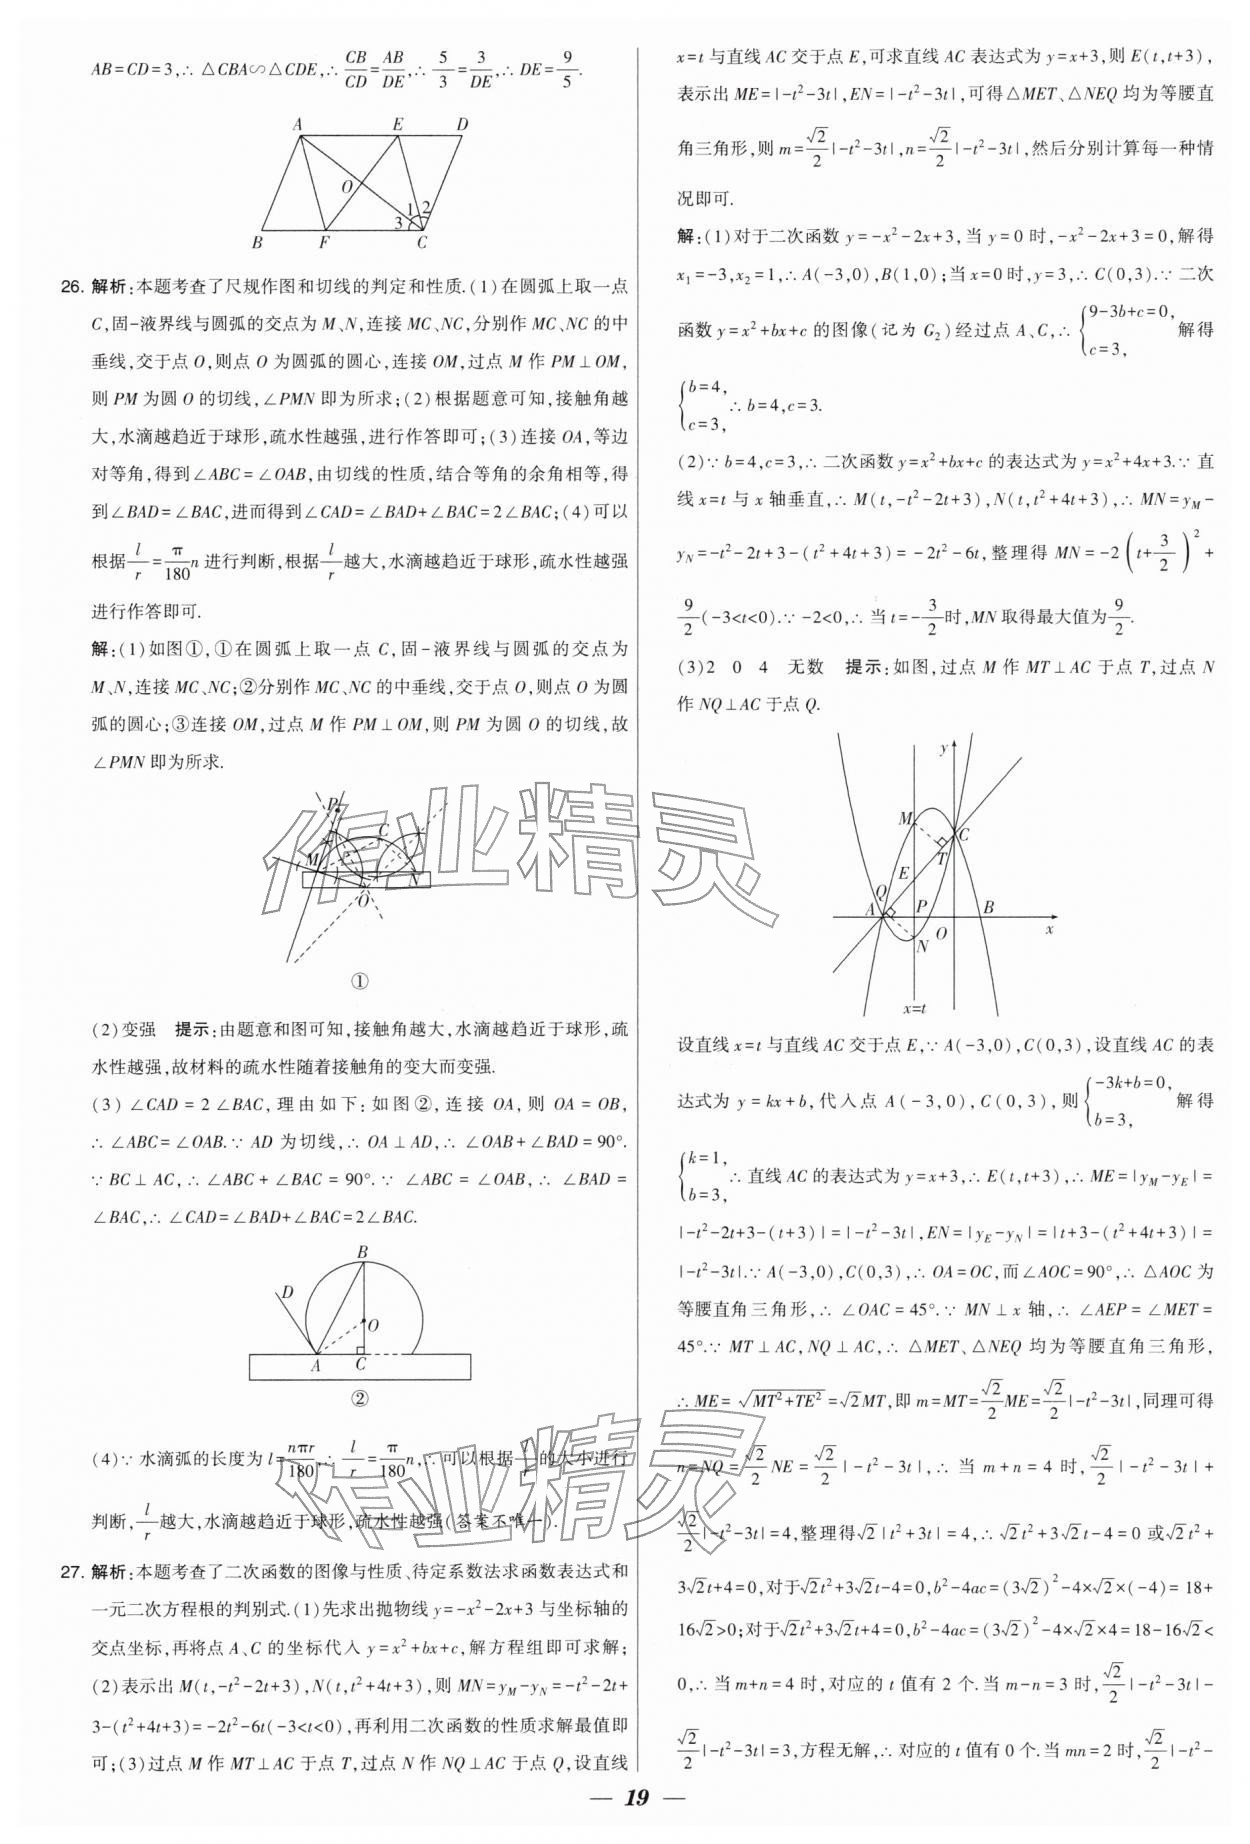 AB=CD=3,∴△CBA∽△CDE,∴CB/CD=AB/DE,∴5/3=3/DE,∴DE=9/5.
A E D
O 1 2 3
B F C
26. 解析:本题考查了尺规作图和切线的判定和性质.(1)在圆弧上取一点
C,固-液界线与圆弧的交点为M、N,连接MC、NC,分别作MC、NC的中
垂线,交于点O,则点O为圆弧的圆心,连接OM,过点M作PM⊥OM,
则PM为圆O的切线,∠PMN即为所求;(2)根据题意可知,接触角越
大,水滴越趋近于球形,疏水性越强,进行作答即可;(3)连接OA,等边
对等角,得到∠ABC=∠OAB,由切线的性质,结合等角的余角相等,得
到∠BAD=∠BAC,进而得到∠CAD=∠BAD+∠BAC=2∠BAC;(4)可以
根据l/r=π/180 n进行判断,根据l/r越大,水滴越趋近于球形,疏水性越强
进行作答即可.
解:(1)如图①,①在圆弧上取一点C,固-液界线与圆弧的交点为
M、N,连接MC、NC;②分别作MC、NC的中垂线,交于点O,则点O为圆
弧的圆心;③连接OM,过点M作PM⊥OM,则PM为圆O的切线,故
∠PMN即为所求.
P C M N O
①
(2)变强 提示:由题意和图可知,接触角越大,水滴越趋近于球形,疏
水性越强,故材料的疏水性随着接触角的变大而变强.
(3)∠CAD=2∠BAC,理由如下:如图②,连接OA,则OA=OB,
∴∠ABC=∠OAB.∵AD为切线,∴OA⊥AD,∴∠OAB+∠BAD=90°.
∵BC⊥AC,∴∠ABC+∠BAC=90°.∵∠ABC=∠OAB,∴∠BAD=
∠BAC,∴∠CAD=∠BAD+∠BAC=2∠BAC.
B D O A C
②
(4)∵水滴弧的长度为l=nπr/180,∴l/r=π/180 n,∴可以根据l/r的大小进行
判断,l/r越大,水滴越趋近于球形,疏水性越强(答案不唯一).
27. 解析:本题考查了二次函数的图像与性质、待定系数法求函数表达式和
一元二次方程根的判别式.(1)先求出抛物线y=-x²-2x+3与坐标轴的
交点坐标,再将点A、C的坐标代入y=x²+bx+c,解方程组即可求解;
(2)表示出M(t,-t²-2t+3),N(t,t²+4t+3),则MN=yM-yN=-t²-2t+
3-(t²+4t+3)=-2t²-6t(-3<t<0),再利用二次函数的性质求解最值即
可;(3)过点M作MT⊥AC于点T,过点N作NQ⊥AC于点Q,设直线
x=t与直线AC交于点E,可求直线AC表达式为y=x+3,则E(t,t+3),
表示出ME=|-t²-3t|,EN=|-t²-3t|,可得△MET、△NEQ均为等腰直
角三角形,则m=√2/2|-t²-3t|,n=√2/2|-t²-3t|,然后分别计算每一种情
况即可.
解:(1)对于二次函数y=-x²-2x+3,当y=0时,-x²-2x+3=0,解得
x₁=-3,x₂=1,∴A(-3,0),B(1,0);当x=0时,y=3,∴C(0,3).∵二次
函数y=x²+bx+c的图像(记为G₂)经过点A、C,∴{9-3b+c=0, c=3, 解得
{b=4, c=3, ∴b=4,c=3.
(2)∵b=4,c=3,∴二次函数y=x²+bx+c的表达式为y=x²+4x+3.∵直
线x=t与x轴垂直,∴M(t,-t²-2t+3),N(t,t²+4t+3),∴MN=yM-
yN=-t²-2t+3-(t²+4t+3)=-2t²-6t,整理得MN=-2(t+3/2)²+
9/2(-3<t<0).∵-2<0,∴当t=-3/2时,MN取得最大值为9/2.
(3)2 0 4 无数 提示:如图,过点M作MT⊥AC于点T,过点N
作NQ⊥AC于点Q.
y M C T E Q A P O B x N
x=t
设直线x=t与直线AC交于点E,∵A(-3,0),C(0,3),设直线AC的表
达式为y=kx+b,代入点A(-3,0),C(0,3),则{-3k+b=0, b=3, 解得
{k=1, b=3, ∴直线AC的表达式为y=x+3,∴E(t,t+3),∴ME=|yM-yE|=
|-t²-2t+3-(t+3)|=|-t²-3t|,EN=|yE-yN|=|t+3-(t²+4t+3)|=
|-t²-3t|.∵A(-3,0),C(0,3),∴OA=OC,而∠AOC=90°,∴△AOC为
等腰直角三角形,∴∠OAC=45°.∵MN⊥x轴,∴∠AEP=∠MET=
45°.∵MT⊥AC,NQ⊥AC,∴△MET、△NEQ均为等腰直角三角形,
∴ME=√MT²+TE²=√2MT,即m=MT=√2/2ME=√2/2|-t²-3t|,同理可得
n=NQ=√2/2NE=√2/2|-t²-3t|,∴当m+n=4时,√2/2|-t²-3t|+
√2/2|-t²-3t|=4,整理得√2|t²+3t|=4,∴√2t²+3√2t-4=0或√2t²+
3√2t+4=0,对于√2t²+3√2t-4=0,b²-4ac=(3√2)²-4×√2×(-4)=18+
16√2>0;对于√2t²+3√2t+4=0,b²-4ac=(3√2)²-4×√2×4=18-16√2<
0,∴当m+n=4时,对应的t值有2个.当m-n=3时,√2/2|-t²-3t|-
√2/2|-t²-3t|=3,方程无解,∴对应的t值有0个.当mn=2时,√2/2|-t²-
— 19 —
作业精灵
作业精灵